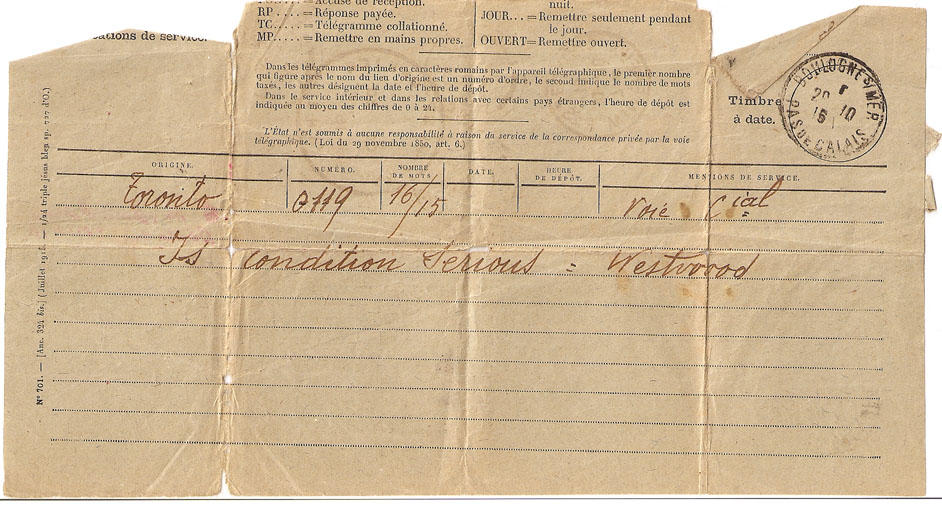 Accusé de réception.
RP..... = Réponse payée.
TC..... = Télégramme collationné.
MP..... = Remettre en mains propres.
nuit.
JOUR... = Remettre seulement pendant
le jour.
OUVERT = Remettre ouvert.
cations de service.
Dans les télégrammes imprimés en caractères romains par l'appareil télégraphique, le premier nombre
qui figure après le nom du lieu d'origine est un numéro d'ordre, le second indique le nombre de mots
taxés, les autres désignent la date et l'heure de dépôt.
Dans le service intérieur et dans les relations avec certains pays étrangers, l'heure de dépôt est
indiquée au moyen des chiffres de 0 à 24.
L'État n'est soumis à aucune responsabilité à raison du service de la correspondance privée par la voie
télégraphique. (Loi du 29 novembre 1850, art. 6.)
Timbre
à date.
BOULOGNE-S-MER
20 10
16
PAS DE CALAIS
ORIGINE. NUMÉRO. NOMBRE DE MOTS DATE. HEURE DE DÉPÔT. MENTIONS DE SERVICE.
Toronto 119 16/15 Voie Cial
Is condition Serious = Westwood
N° 701. — [Ann. 324 bis.] (Juillet 191